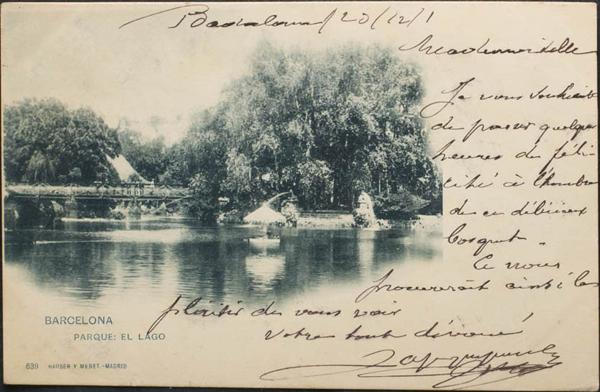 Barcelona 23/12/1
Mademoiselle
Je vous souhaite
de passer quelques
heures de féli-
cité à l'ombre
de ce délicieux
bosquet.
Ce nous
procurerait ainsi le
plaisir de vous voir
Votre tout dévoué
BARCELONA
PARQUE: EL LAGO
639 HAUSER Y MENET.-MADRID